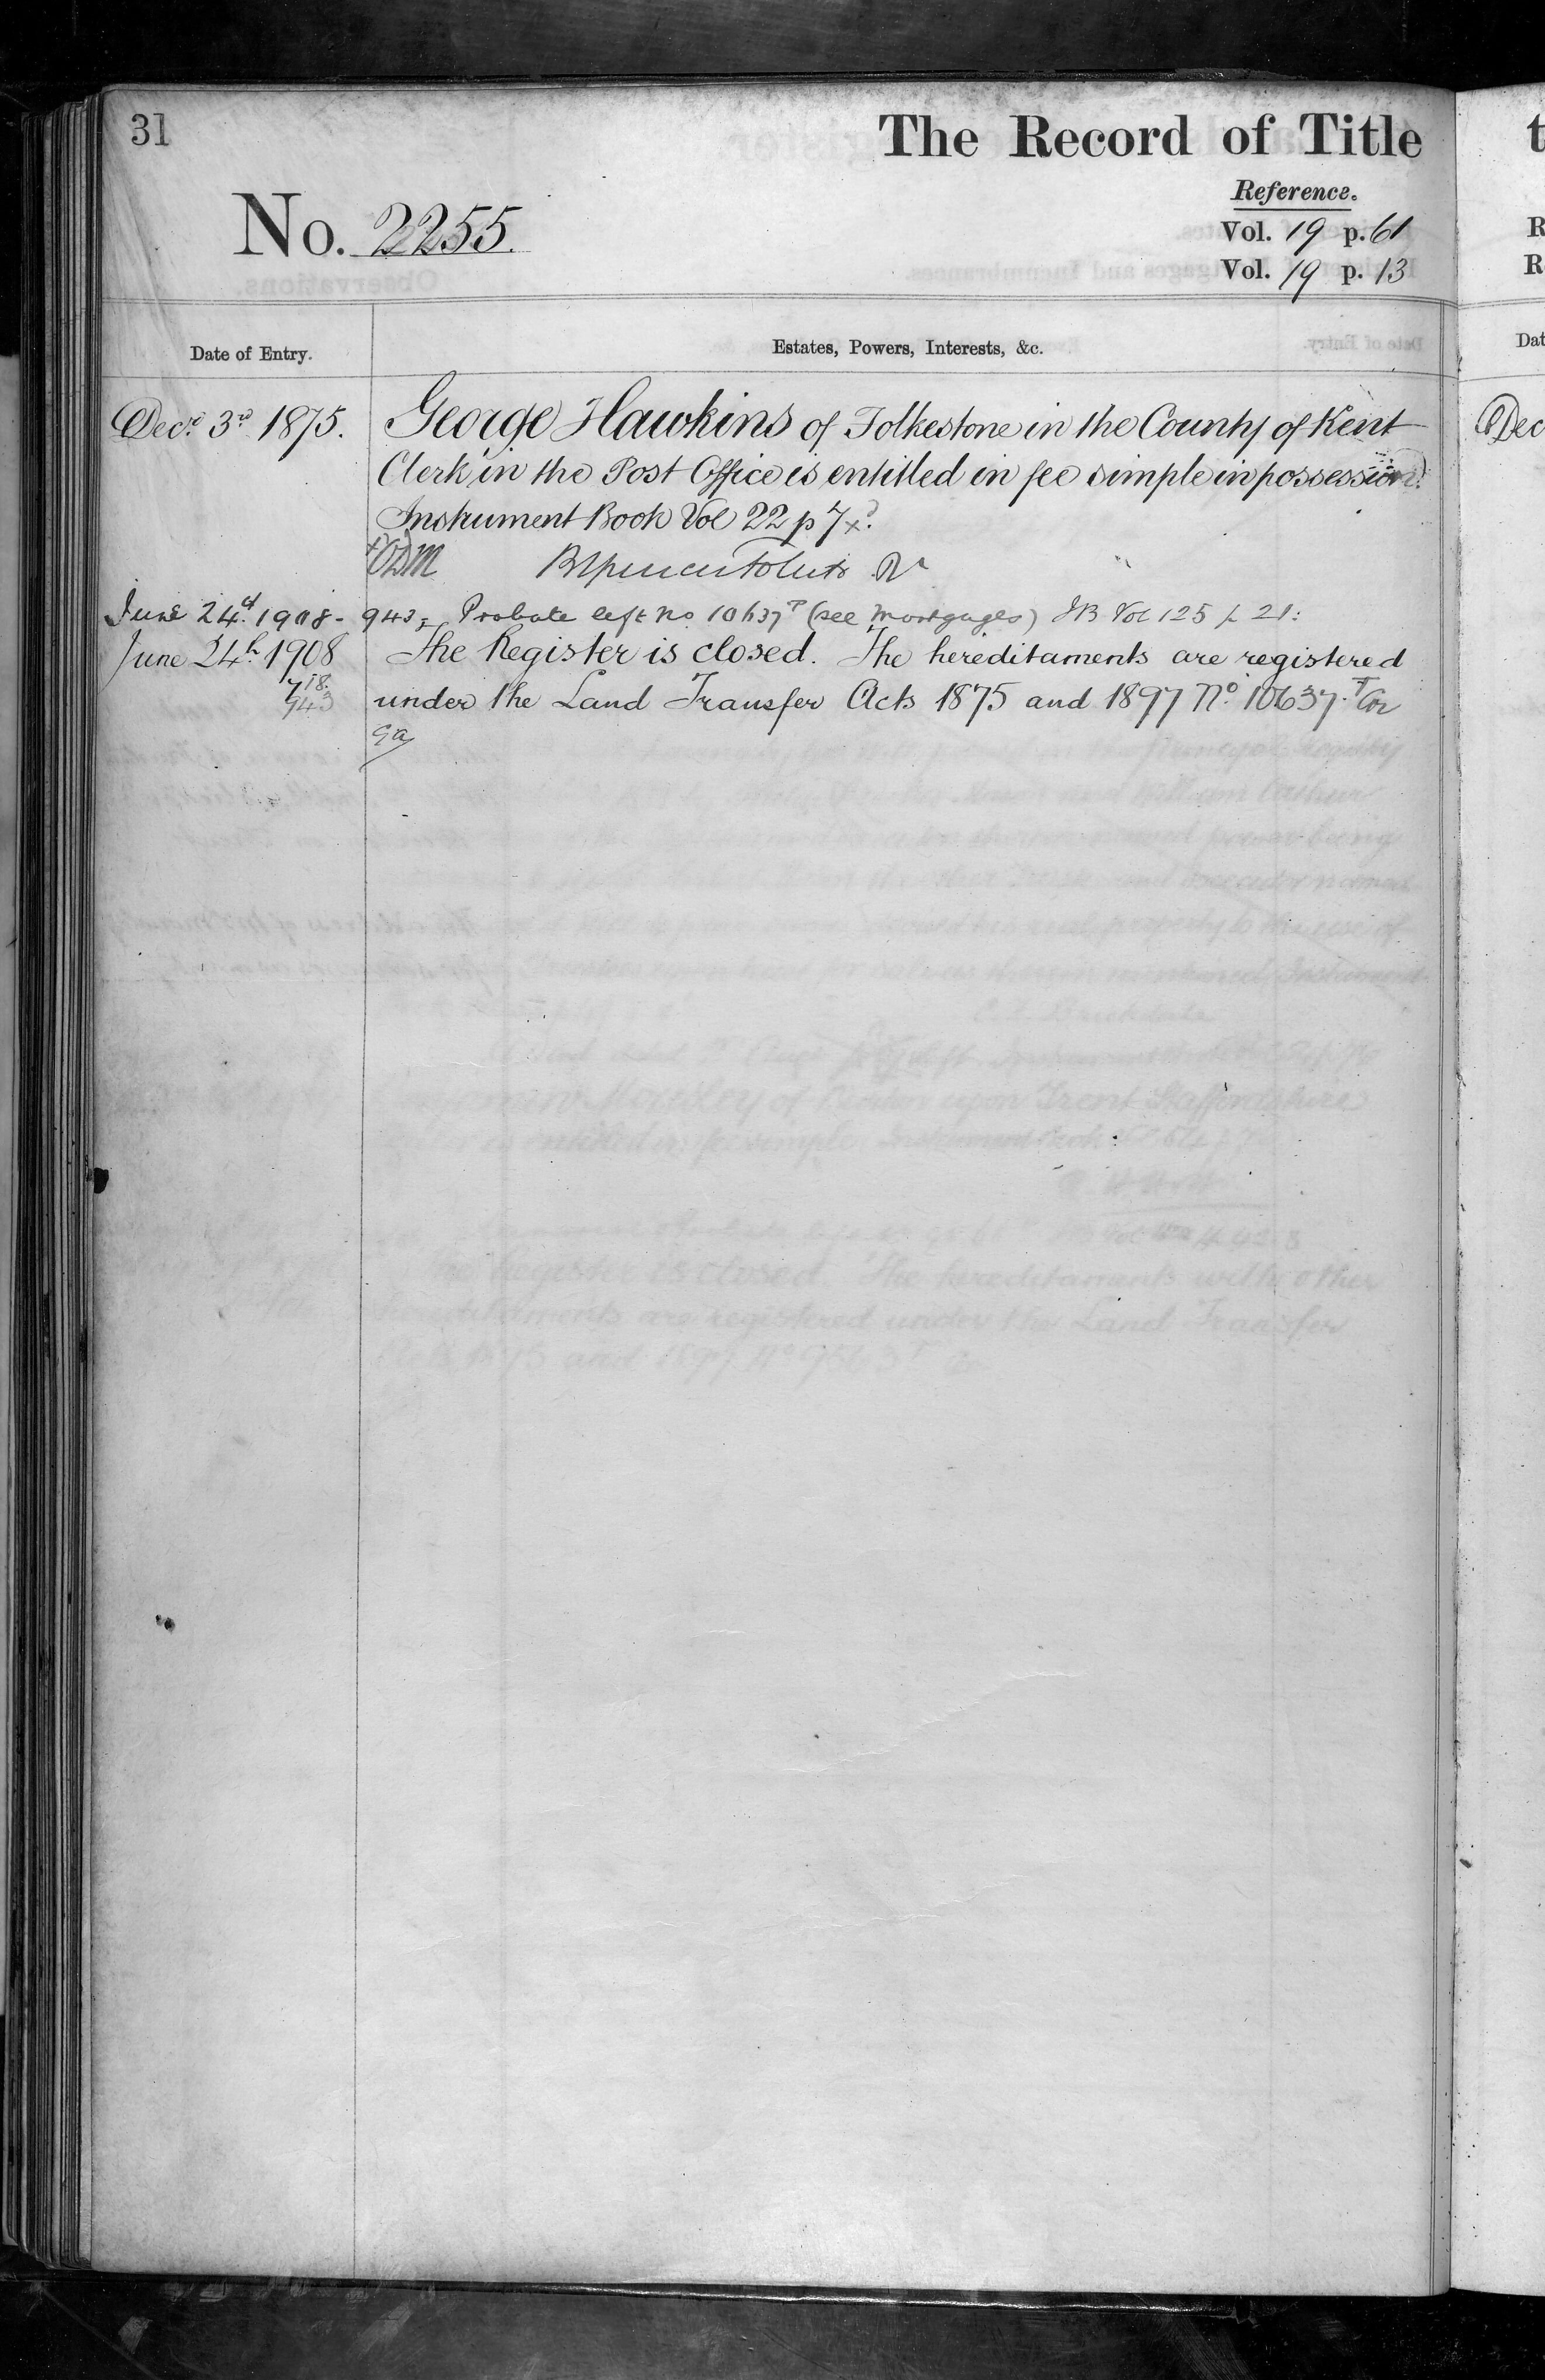 31
The Record of Title
Reference.
No. 2255.
Vol. 19 p. 61
Vol. 19 p. 13
Date of Entry.
Estates, Powers, Interests, &c.
Decr. 3rd 1875.
George Hawkins of Folkestone in the County of Kent
Clerk in the Post Office is entitled in fee simple in possession.
Instrument Book Vol 22 p 7
June 24th 1908 - 943 Probate left No 10637 T (see Mortgages) IB Vol 125 p 21:
June 24th 1908 The Register is closed. The hereditaments are registered
943 under the Land Transfer Acts 1875 and 1897 No. 10637. T
Dec